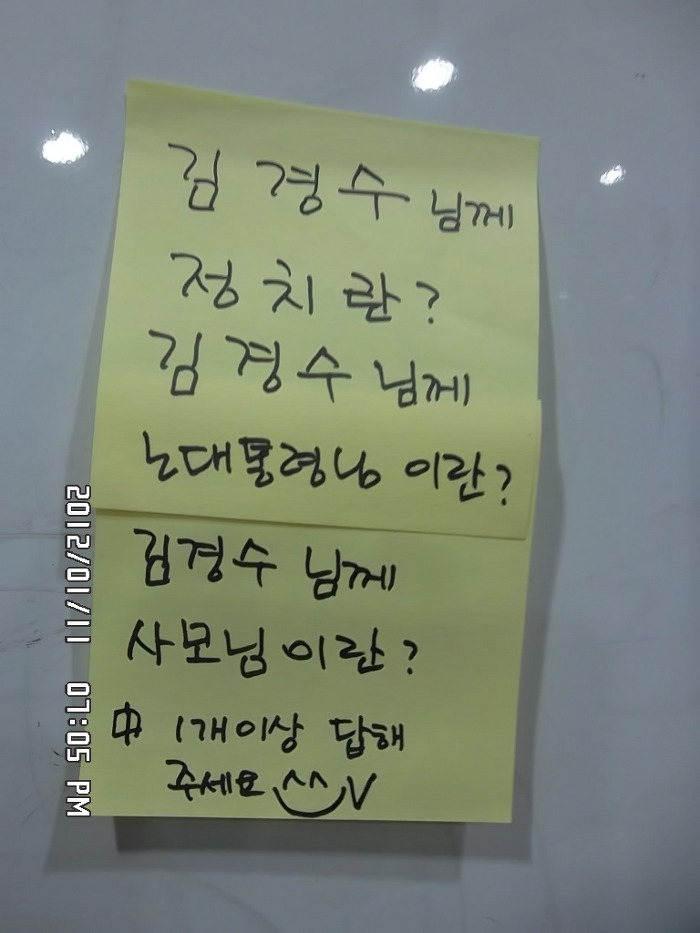 김 경 수 님께
정 치 란?
김 경 수 님께
노대통령님 이란?
김경수 님께
사모님이란?
中 1개이상 답해
주세요 ^^ V
2012/01/11 07:05 PM